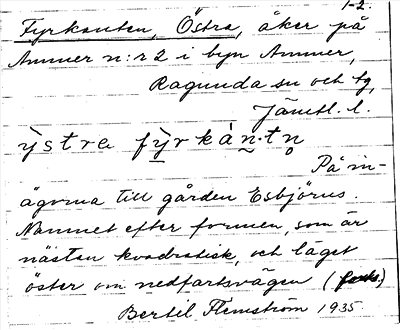 1-2.
Fyrkanten, Östra, åker på
Ammer n:r 2 i byn Ammer,
Ragunda sn och tg,
Jämtl. l.
ỳstra fỳrkàn·tn̥
På in-
ägorna till gården Esbjörns.
Namnet efter formen, som är
nästan kvadratisk, och läget
öster om nedfartsvägen (forts.)
Bertil Flemström 1935.